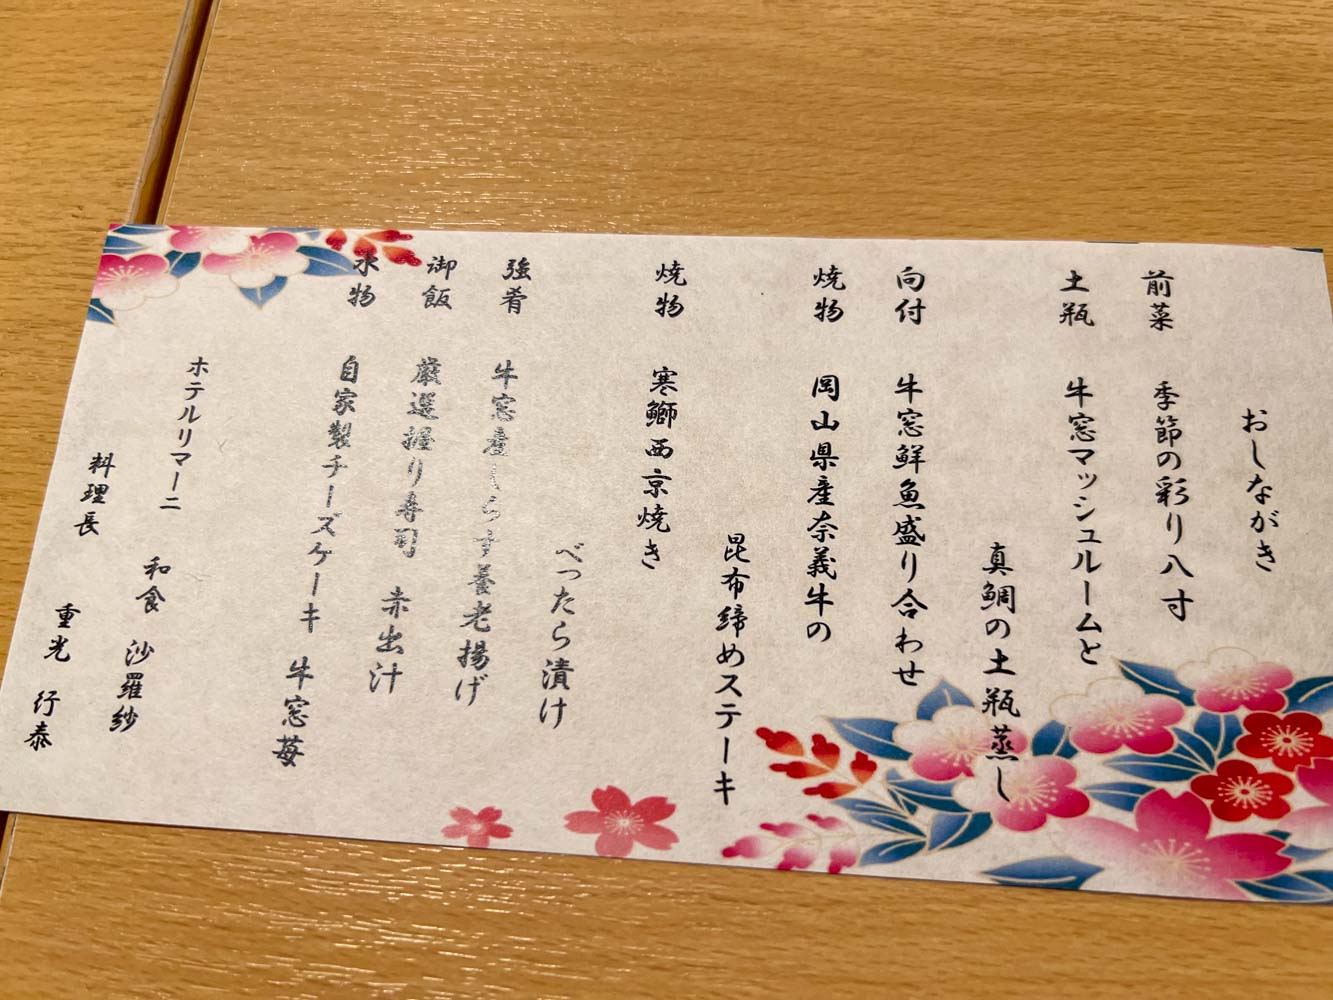 おしながき
前菜 季節の彩り八寸
土瓶 牛窓マッシュルームと
真鯛の土瓶蒸し
向付 牛窓鮮魚盛り合わせ
焼物 岡山県産奈義牛の
昆布締めステーキ
焼物 寒鰤西京焼き
べったら漬け
強肴 牛窓産しらす養老揚げ
御飯 厳選握り寿司 赤出汁
水物 自家製チーズケーキ 牛窓苺
ホテルリマーニ
和食 沙羅紗
料理長 重光 行泰